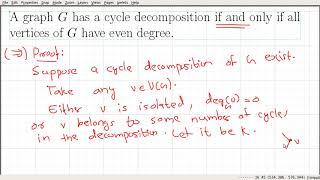 A graph G has a cycle decomposition if and only if all
vertices of G have even degree.
(⇒) Proof:
Suppose a cycle decomposition of G exist.
Take any v∈V(G).
Either v is isolated, deg(v)=0
or v belongs to some number of cycles
in the decomposition. Let it be k.
v